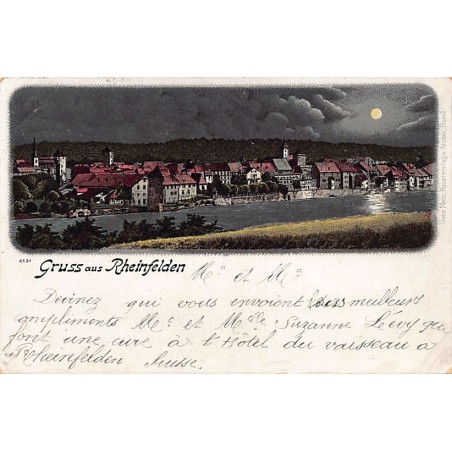 6131
Gruss aus Rheinfelden
Mr et Me
Devinez qui vous envoient leurs meilleurs
compliments Me et Melle Suzanne Lévy qui
font une cure à l'Hôtel du vaisseau à
Rheinfelden Suisse.